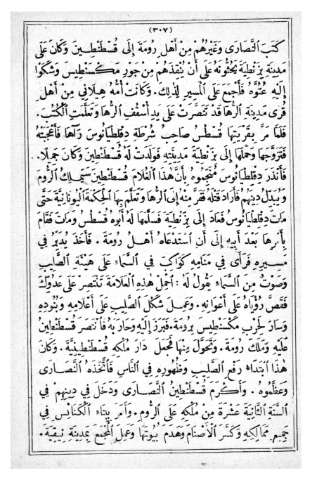 (٣٠٧)
كتب النصارى وغيرهم من أهل رومة إلى قسطنطين وكان على
مدينة بزنطية يحثونه على أن ينقذهم من جور مكسنطيس وشكوا
إليه عتوّه فأجمع على المسير لذلك. وكانت أمه هيلاني من أهل
قرى مدينة الرها قد تنصّرت على يد أسقف الرها وتعلمت الكتب.
فلما مرّ بقريتها قسطس صاحب شرطة دقلطيانوس ورآها فأعجبته
فتزوجها وحملها إلى بزنطية مدينته فولدت له قسطنطين وكان جميلا.
فأنذر دقلطيانوس منجموه بأن هذا الغلام قسطنطين سيملك الروم
ويبدل دينهم فأراد قتله ففر منه إلى الرها وتعلم بها الحكمة اليونانية حتى
مات دقلطيانوس فعاد إلى بزنطية فسلمها له أبوه قسطس ومات فقام
بأمرها بعد أبيه إلى أن استدعاه أهل رومة. فأخذ يدبر في
مسيره فرأى في منامه كواكب في السماء على هيئة الصليب
وصوت من السماء يقول له: احمل هذه العلامة تنتصر على عدوك
فقص رؤياه على أعوانه. وعمل شكل الصليب على أعلامه وبنوده
وسار لحرب مكسنطيس برومة. فبرز إليه وحاربه فانتصر قسطنطين
عليه وملك رومة. وتحول منها فجعل دار ملكه قسطنطينية. وكان
هذا ابتداء رفع الصليب وظهوره في الناس فاتخذه النصارى
وعظموه. وأكرم قسطنطين النصارى ودخل في دينهم في
السنة الثانية عشرة من ملكه على الروم. وأمر ببناء الكنائس في
جميع ممالكه وكسر الأصنام وهدم بيوتها وعمل المجمع بمدينة نيقية.